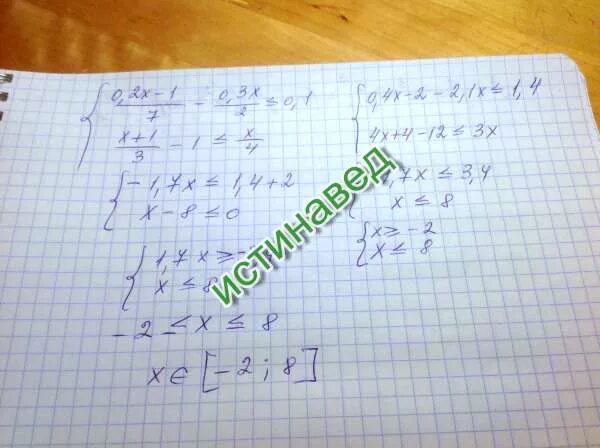 { (0,2x-1)/7 - 0,3x/2 ≤ 0,1
(x+1)/3 - 1 ≤ x/4
{ 0,4x-2-2,1x ≤ 1,4
4x+4-12 ≤ 3x
{ -1,7x ≤ 1,4+2
x-8 ≤ 0
,7x ≤ 3,4
x ≤ 8
{ 1,7x ≥
x ≤ 8
{ x ≥ -2
x ≤ 8
-2 ≤ x ≤ 8
x ∈ [-2; 8]
истинавед